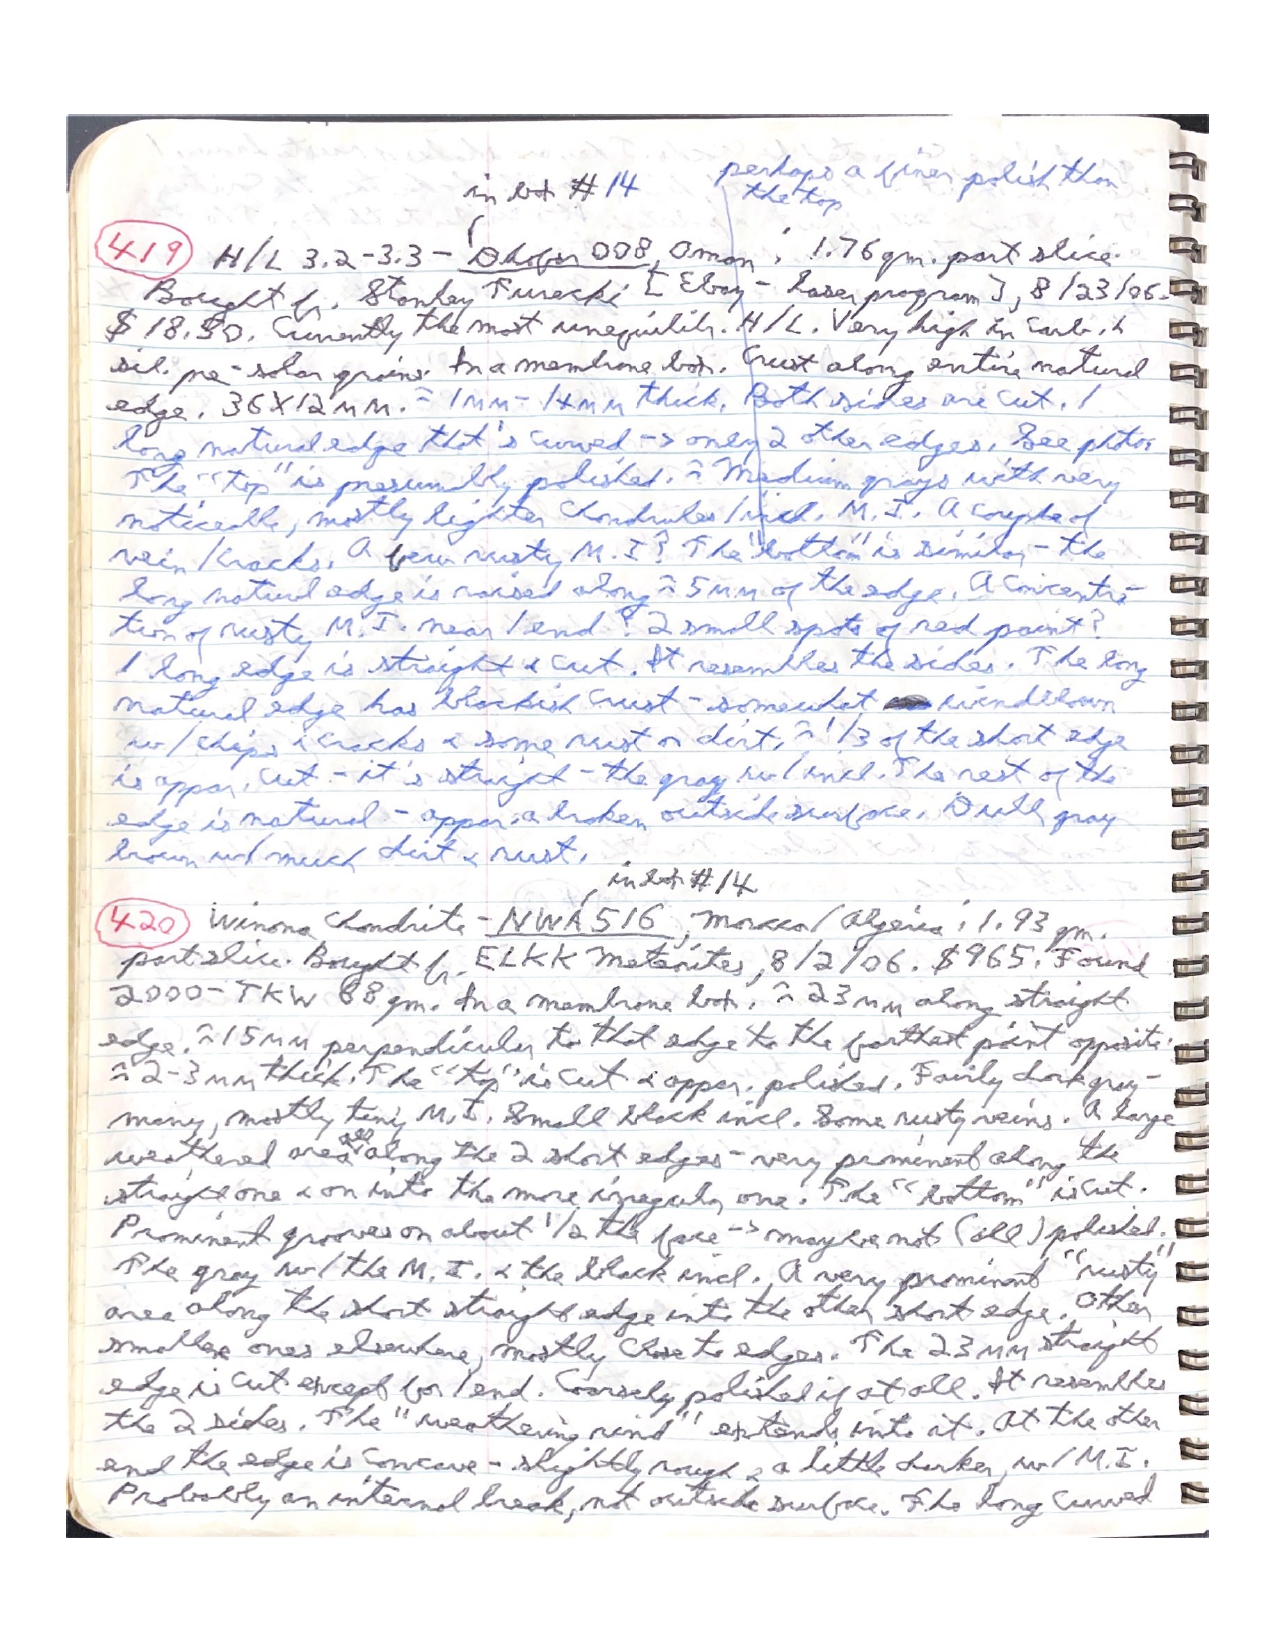 perhaps a finer polish than
the top
in box #14
419 H/L 3.2-3.3 - Dhofar 008, Oman; 1.76 gm. part slice.
Bought fr. Stanley Turecki [Ebay - laser program], 8/23/06.
$18.50. Currently the most unequilib. H/L. Very high in carb. &
sil. pre-solar grains. In a membrane box. Crust along entire natural
edge. 36X12mm. ≈ 1mm- 1+mm thick. Both sides are cut. 1
long natural edge that's curved -> only 2 other edges. See photos
The "top" is presumably polished. ≈ Medium grays with very
noticeable, mostly lighter chondrules/incl. M.I. A couple of
vein/cracks. A few rusty M.I? The "bottom" is similar - the
long natural edge is raised along ≈ 5mm of the edge. A concentra-
tion of rusty M.I. near 1 end? 2 small spots of red paint?
1 long edge is straight & cut. It resembles the sides. The long
natural edge has blackish crust - somewhat windblown
w/chips & cracks & some rust or dirt. ≈ 1/3 of the short edge
is appar. cut - it's straight - the gray w/ incl. The rest of the
edge is natural - appar. a broken outside surface. Dull gray
brown w/ much dirt & rust.
in box #14
420 Winona Chondrite - NWA 516, Morocco/Algeria; 1.93 gm.
part slice. Bought fr. ELKK Meteorites, 8/2/06. $965. Found
2000 - TKW 88 gm. In a membrane box. ≈ 23mm along straight
edge. ≈ 15mm perpendicular to that edge to the farthest point opposite.
≈ 2-3mm thick. The "top" is cut & appar. polished. Fairly dark gray -
many, mostly tiny M.I. Small black incl. Some rusty veins. A large
weathered area all along the 2 short edges - very prominent along the
straight one & on into the more irregular one. The "bottom" is cut.
Prominent grooves on about 1/2 the face -> maybe not (all) polished.
The gray w/ the M.I. & the black incl. A very prominent "rusty"
area along the short straight edge into the other short edge. Other
smaller ones elsewhere, mostly close to edges. The 23mm straight
edge is cut except for 1 end. Coarsely polished if at all. It resembles
the 2 sides. The "weathering rind" extends into it. At the other
end the edge is concave - slightly rough & a little darker, w/ M.I.
Probably an internal break, not outside surface. The long curved